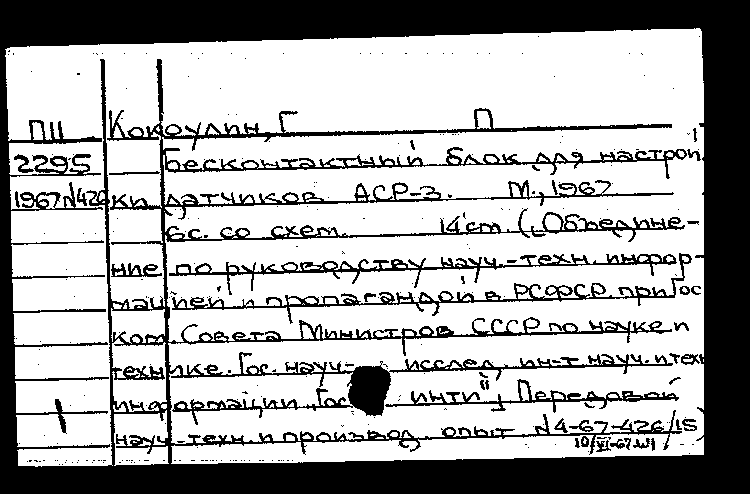 ПII Кокоулин, Г П
2295 Бесконтактный блок для настрой
1967 №426 ки датчиков АСР-3. М., 1967
6с. со схем. 14 cm. („Объедине-
ние по руководству науч.-техн. инфор-
мацией и пропагандой в РСФСР при Гос
ком. Совета Министров СССР по науке и
технике. Гос. науч.- исслед. ин-т науч. и техн
информации „Гос ИНТИ") Передовой
науч.-техн. и производ. опыт №4-67-426/15)